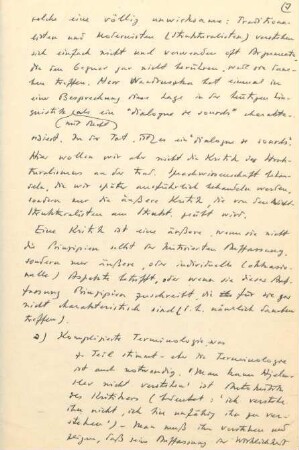 7
welche eine völlig unwirksame: Traditiona-
listen und Modernisten (Strukturalisten) verstehen
sich einfach nicht und verwenden oft Argumente
die den Gegner gar nicht berühren, weil sie daneben
treffen. Herr Wandruszka hat einmal in
einer Besprechung diese Lage in der heutigen Lin-
guistik als ein "dialogue de sourds" charakte-
(mit Recht)
risiert. In der Tat, ein "dialogue de sourds".
Hier wollen wir aber nicht die Kritik des Struk-
turalismus an der trad. Sprachwissenschaft behan-
deln, die wir später ausführlich behandeln werden,
sondern nur die äußere Kritik, die von den Nicht-
strukturalisten am Strukt. geübt wird.
Eine Kritik ist eine äußere, wenn sie nicht
die Prinzipien selbst der kritisierten Auffassung,
sondern nur äußere, oder individuelle
Aspekte betrifft, oder wenn sie dieser Auf-
fassung Prinzipien zuschreibt, die für sie gar
nicht charakteristisch sind (d.h. nämlich daneben
treffen.)
a) Komplizierte Terminologie, was
z. Teil stimmt – aber die Terminologie
ist auch notwendig. 'Man kann Hjelm-
slev nicht verstehen' ist
des Kritikers (bedeutet: 'ich verstehe
ihn nicht, ich bin unfähig ihn zu ver-
stehen') – Man muß ihn verstehen und
zeigen, daß seine Auffassung in Wirklichkeit